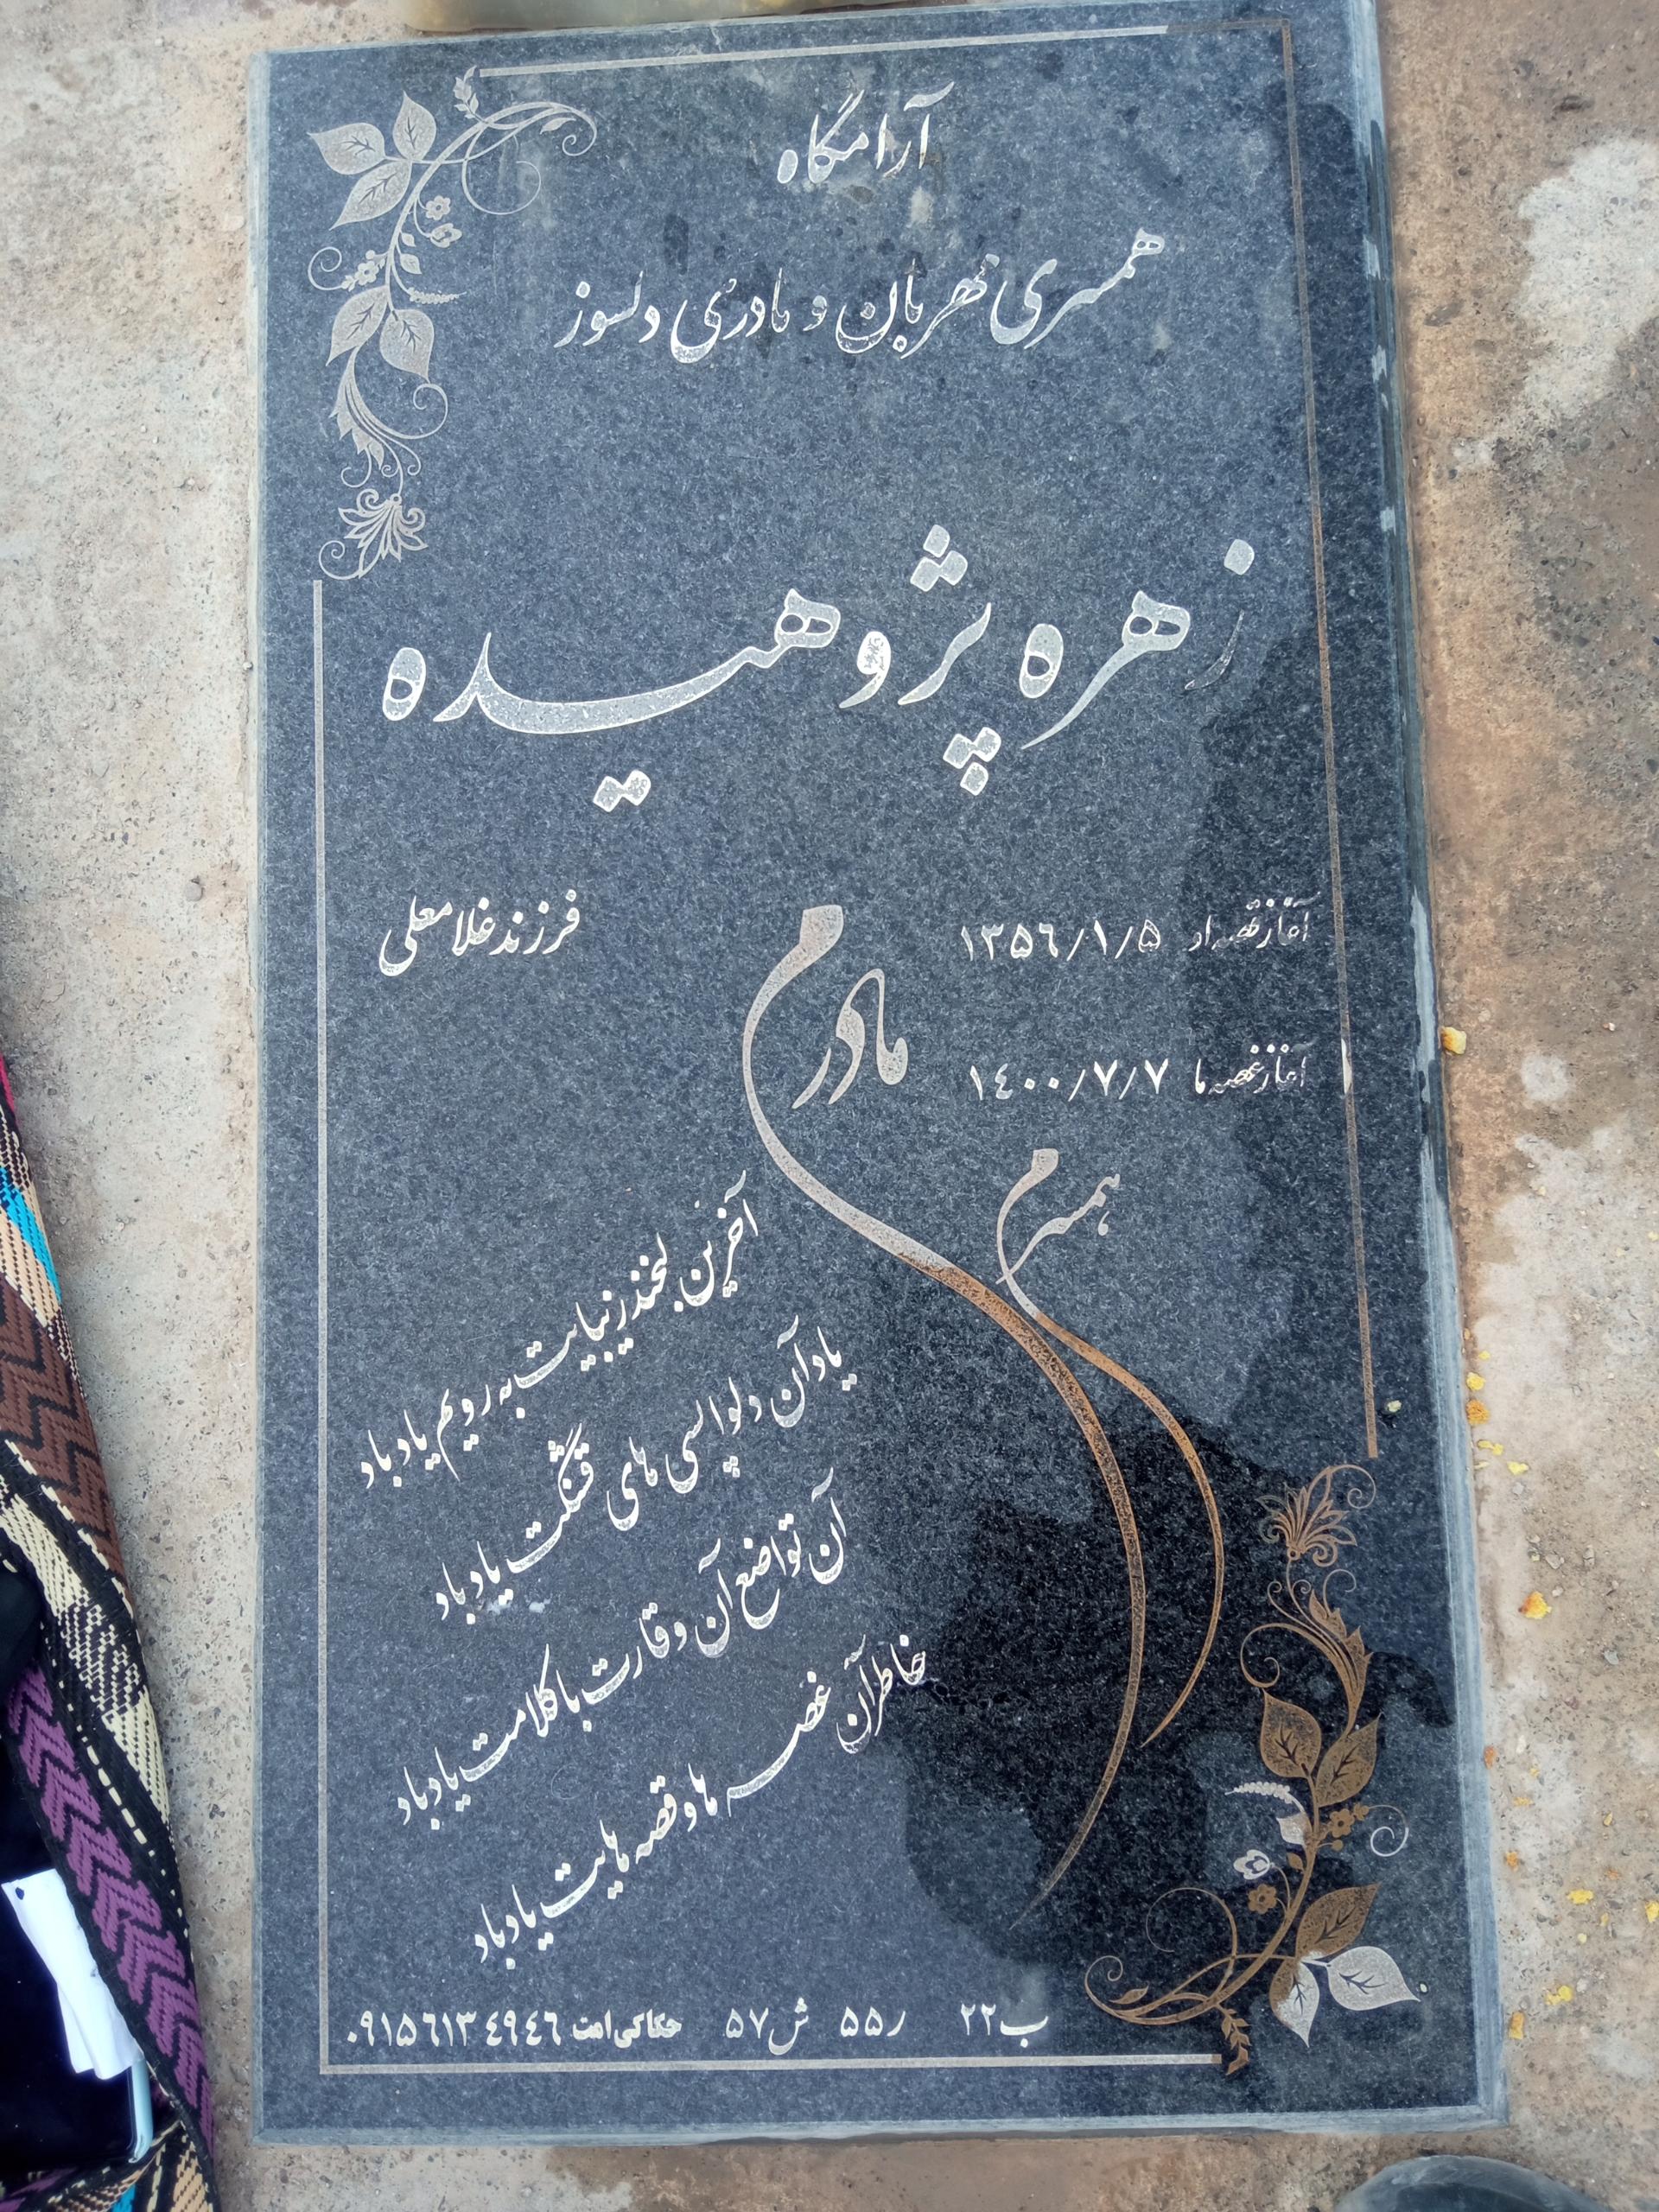 آرامگاه
همسری مهربان و مادری دلسوز
زهره پژوهیده
فرزند غلامعلی
آغاز قصه او ۱۳۵۶/۱/۵
آغاز غصه ما ۱٤۰۰/۷/۷
مادرم
همسرم
آخرین لبخند زیبایت به رویم یاد باد
یاد آن دلواپسی های قشنگت یاد باد
آن تواضع آن وقارت با کلامت یاد باد
خاطر آن غصه ها و قصه هایت یاد باد
ب۲۲ ر۵۵ ش۵۷ حکاکی امت ۰۹۱۵٦۱۳٤۹٤٦